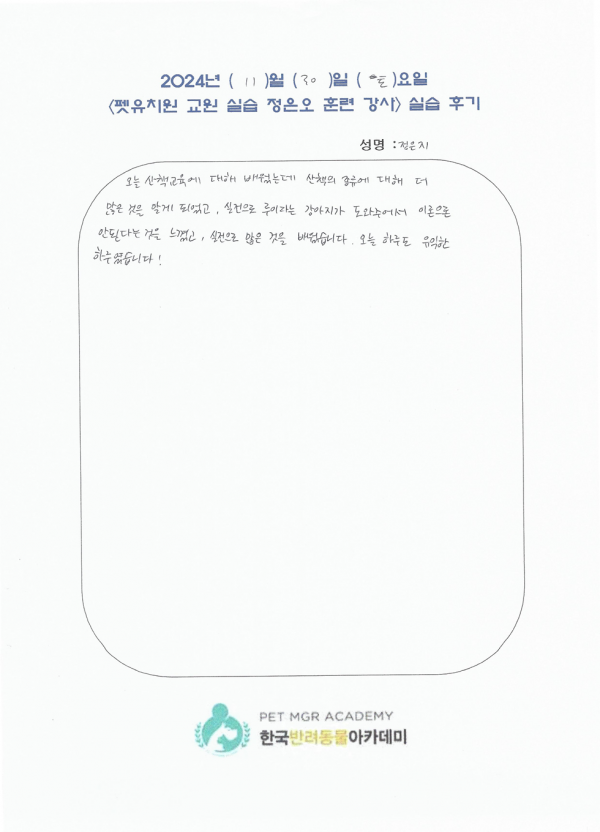 2024년 ( 11 )월 ( 30 )일 ( 토 )요일
<펫유치원 교원 실습 정은오 훈련 강사> 실습 후기
성명 : 정은지
오늘 산책교육에 대해 배웠는데 산책의 종류에 대해 더
많은 것을 알게 되었고, 실전으로 루이라는 강아지가 도와주어서 이론으로
안된다는 것을 느꼈고, 실전으로 많은 것을 배웠습니다. 오늘 하루도 유익한
하루였습니다!
PET MGR ACADEMY
한국반려동물아카데미